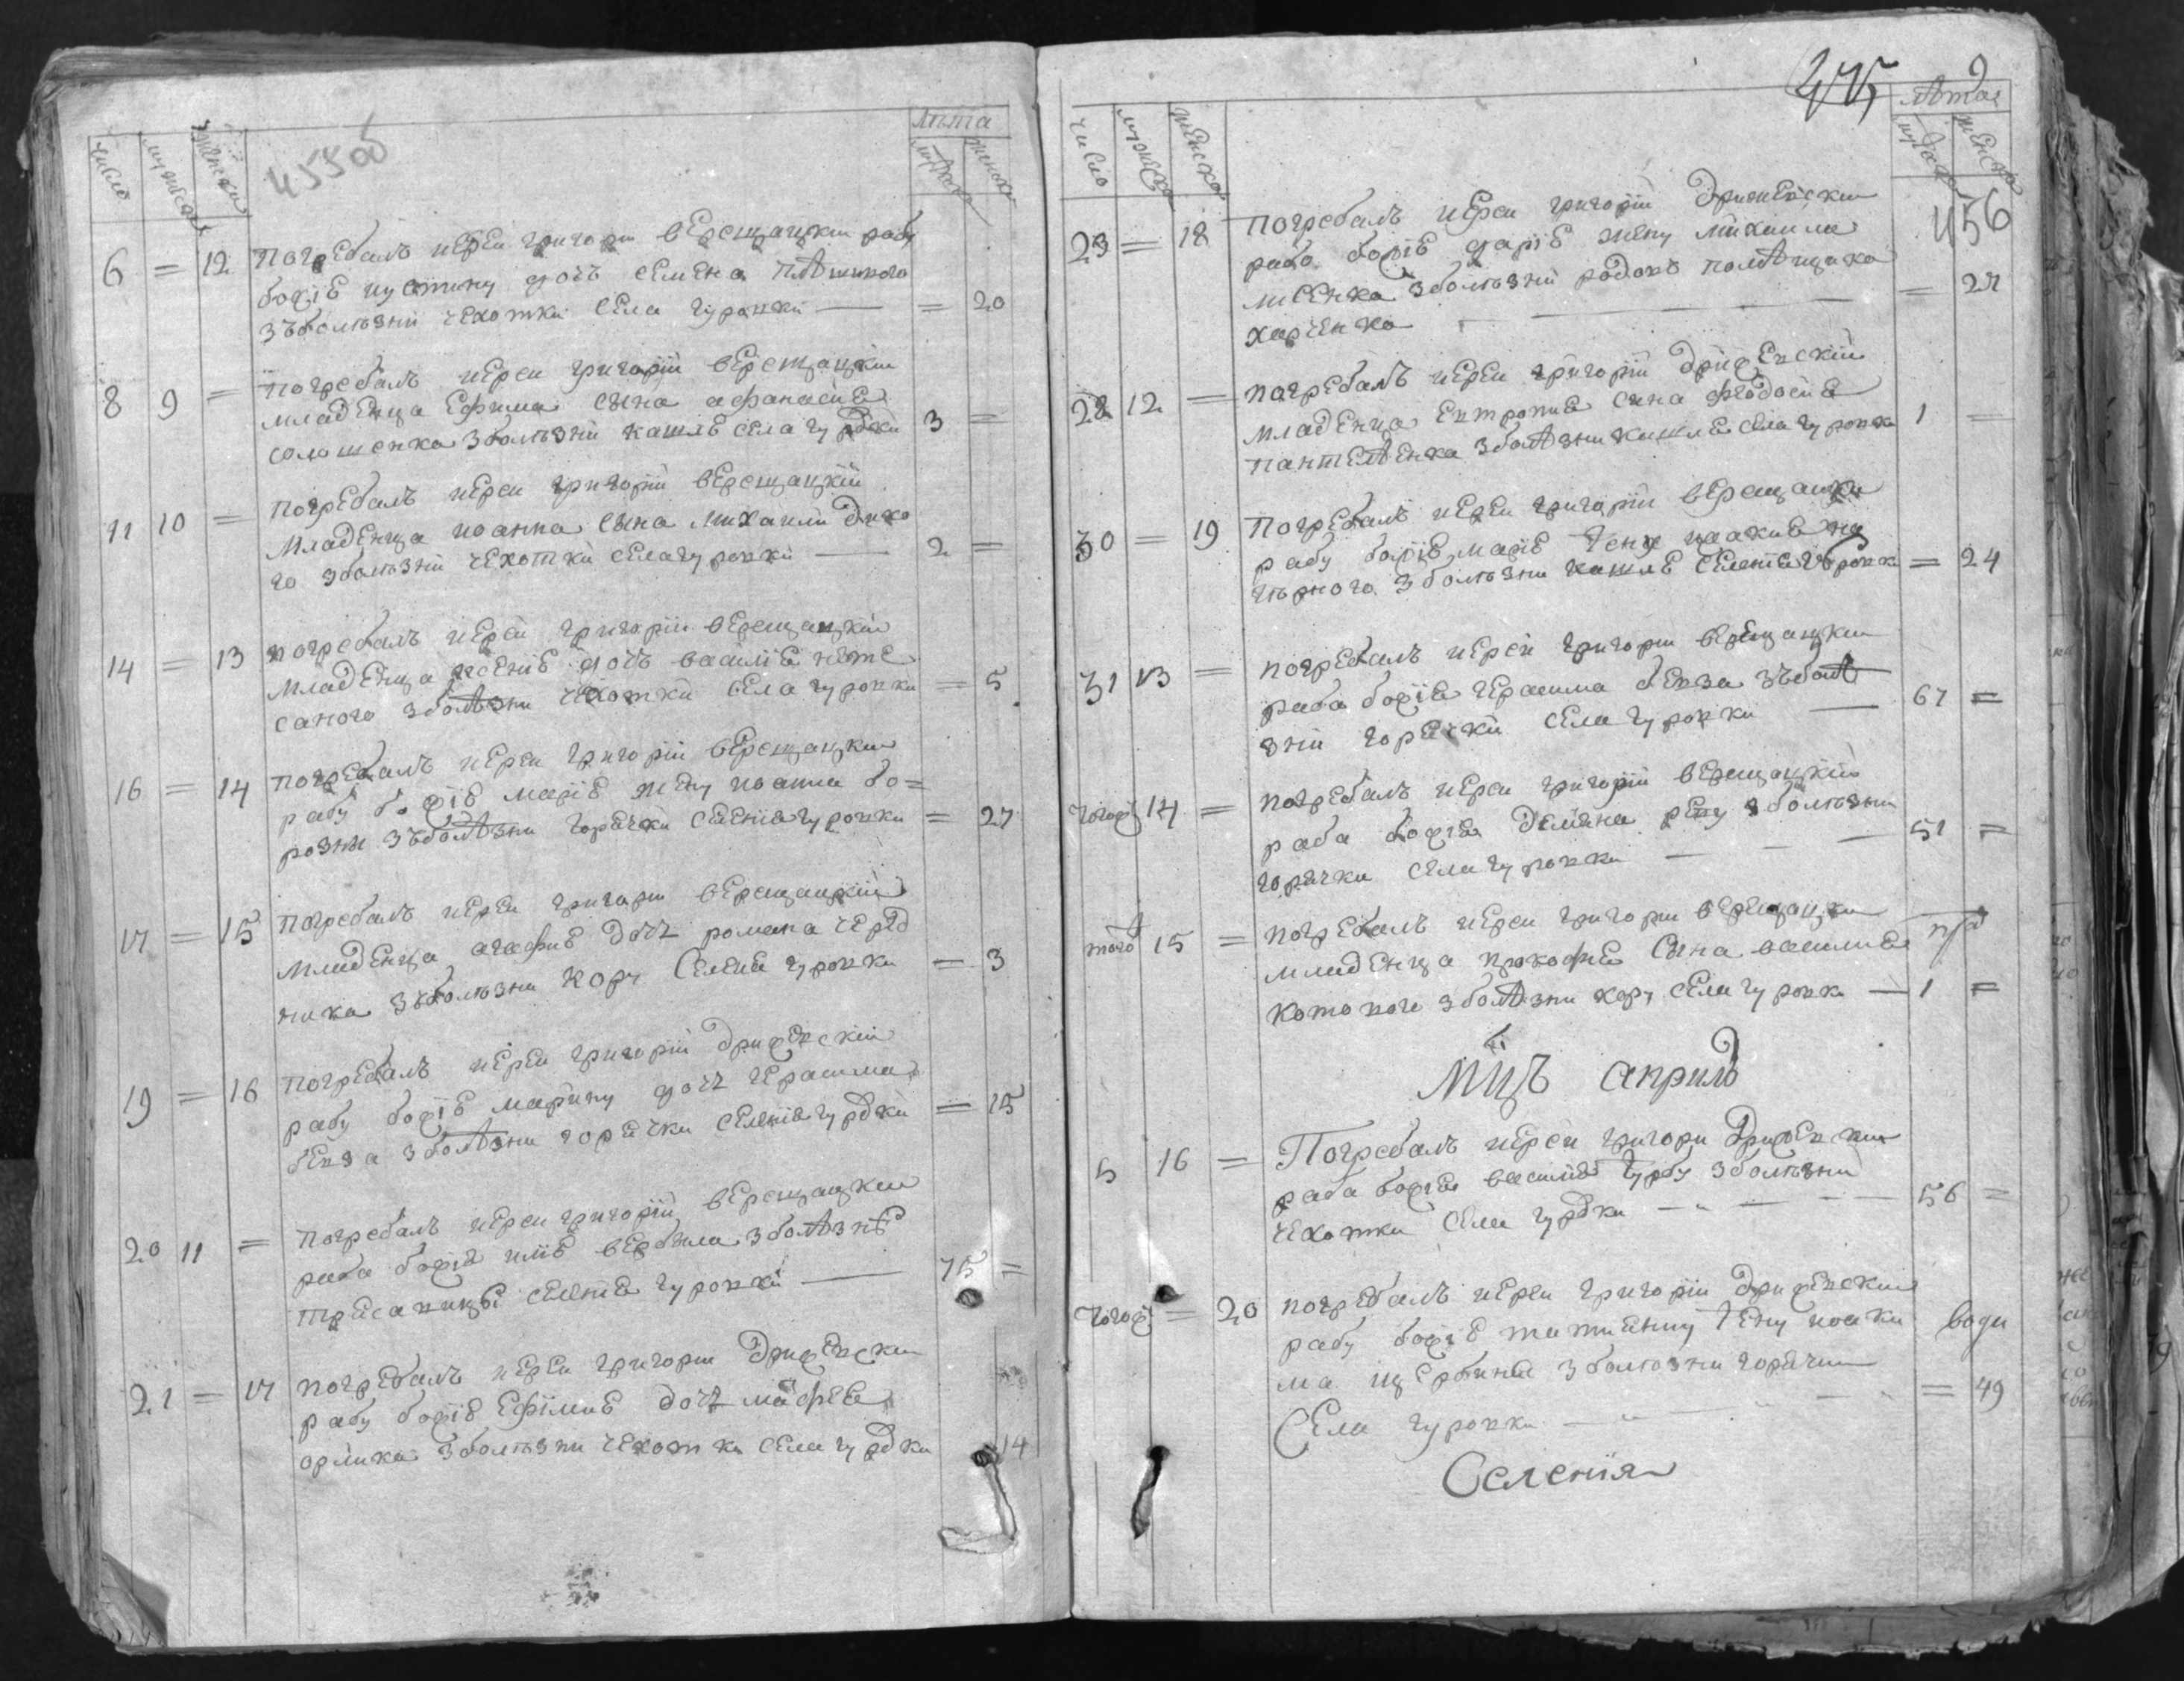 455об
число мужеска женски
лѣта
мужска женска
6 = 12 погребалъ иерей григори верещацки рабу
божіе иустину дочь семена пѣшиного
зъболѣзни чехотки села гуровки — = 20
8 9 = погребалъ иереи григорий верещацки
младенца ефима сына афанасие
солошенка зболѣзни кашлѣ села гуровки 3 =
11 10 = погребалъ иереи григорий верещацкий
младенца иоанна сына михаили дико
го зболѣзни чехотки села гуровки — 2 =
14 = 13 погребалъ иерей григорий верещацкий
младенца ксение дочь василие неже
саного зболѣзни чехотки села гуровки = 5
16 = 14 погребалъ иереи григорий верещацки
рабу божіе марие жену иоанна бо=
розни зъболѣзни горечки селение гуровки = 27
17 = 15 погребалъ иереи григори верещацкий
младенца агафие дочь романа черед
ника зъболѣзни кору селение гуровки = 3
19 = 16 погребалъ иереи григорий дриженский
рабу божіе марину дочь герасима
бенза зболѣзни горечки селение гуровки = 15
20 11 = погребалъ иереи григорий верещацки
раба божіе илие вербила зболѣзне
тресавицы селение гуровки — 75 =
21 = 17 погребалъ иереи григори дриженски
рабу божіе ефимие дочь мафее
орлика зболѣзни чехотки села гуровки = 14
475 9
число мужеска женска
лѣта
мужска женска
456
23 = 18 погребалъ иереи григорий дриженски
раба божіе дарие жену михаила
лисенка зболѣзни родовъ помѣщика
харченка — = 27
28 12 = погребалъ иереи григорий дриженский
младенца евтропие сина федосие
пантелѣенка зболѣзни кашле села гуровки 1 =
30 = 19 погребалъ иереи григорий верещацки
рабу божіе марие жену иоакие
гирного зболѣзни кашле селение гуровки = 24
31 13 = погребалъ иерей григори верещацки
раба божіе герасима бенза зъболѣ
зни горечки села гуровки — 67 =
тогож 14 = погребалъ иереи григорий верещацкий
раба божіе демяна репу зболѣзни
горечки села гуровки — 51 =
того 15 = погребалъ иереи григори верещацки
младенца прокофие сына василие
котового зболѣзни кору села гуровки — 1 =
мцъ априлъ
5 16 = Погребалъ иерей григори дриженски
раба божіе василие гурбу зболѣзни
чехотки села гуровки — 56 =
тогож = 20 погребалъ иереи григорий дриженский
рабу божіе татиенну жену иоаки
ма щербини зболѣзни горечки
Села гуровки — = 49
Селения